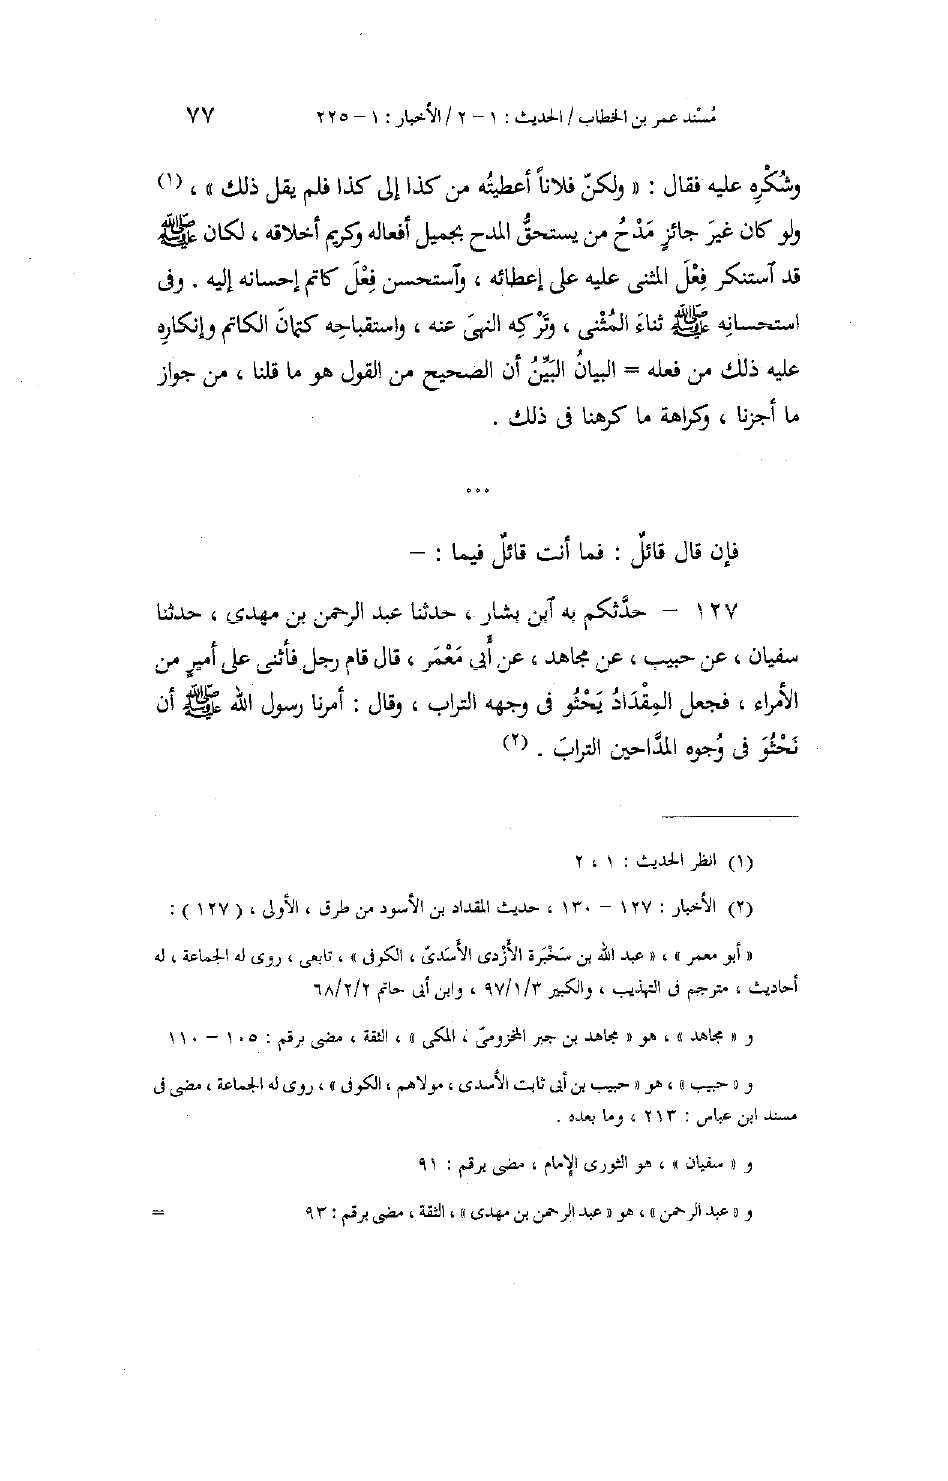 مُسْند عمر بن الخطاب / الحديث : ١ – ٢ / الأخبار : ١ – ٢٢٥ ٧٧
وشُكْرِه عليه فقال : « ولكنّ فلاناً أعطيتُه من كذا إلى كذا فلم يقل ذلك » ، (١)
ولو كان غيرَ جائزٍ مَدْحُ من يستحقُّ المدح بجميل أفعاله وكريم أخلاقه ، لكان ﷺ
قد آستنكر فِعْلَ المثنى عليه على إعطائه ، وآستحسن فِعْلَ كاتم إحسانه إليه . وفى
استحسانِه ﷺ ثناءَ المُثْنى ، وتَرْكِه النهىَ عنه ، واستقباحِه كتمانَ الكاتم وإنكارِه
عليه ذلك من فعله = البيانُ البَيِّنُ أن الصحيح من القول هو ما قلنا ، من جواز
ما أجزنا ، وكراهة ما كرهنا فى ذلك .
٥٥٥
فإن قال قائلٌ : فما أنت قائلٌ فيما : –
١٢٧ – حدَّثكم به آبن بشار ، حدثنا عبد الرحمن بن مهدى ، حدثنا
سفيان ، عن حبيب ، عن مجاهد ، عن أَبى مَعْمَر ، قال قام رجل فأثنى على أميرٍ من
الأمراء ، فجعل المِقْدَادُ يَحْثُو فى وجهه التراب ، وقال : أمرنا رسول الله ﷺ أن
نَحْثُوَ فى وُجوه المدَّاحين الترابَ . (٢)
(١) انظر الحديث : ١ ، ٢
(٢) الأخبار : ١٢٧ – ١٣٠ ، حديث المقداد بن الأسود من طرق ، الأولى ، ( ١٢٧ ) :
« أبو معمر » ، « عبد الله بن سَخْبَرة الأَزْدى الأَسَدىّ ، الكوفى » ، تابعى ، روى له الجماعة ، له
أحاديث ، مترجم فى التهذيب ، والكبير ٩٧/١/٣ ، وابن أبى حاتم ٦٨/٢/٢
و « مجاهد » ، هو « مجاهد بن جبر المخزومىّ ، المكى » ، الثقة ، مضى برقم : ١٠٥ – ١١٠
و « حبيب » ، هو « حبيب بن أبى ثابت الأسدى ، مولاهم ، الكوفى » ، روى له الجماعة ، مضى فى
مسند ابن عباس : ٢١٣ ، وما بعده .
و « سفيان » ، هو الثورى الإمام ، مضى برقم : ٩١
و « عبد الرحمن » ، هو « عبد الرحمن بن مهدى » ، الثقة ، مضى برقم : ٩٣ =